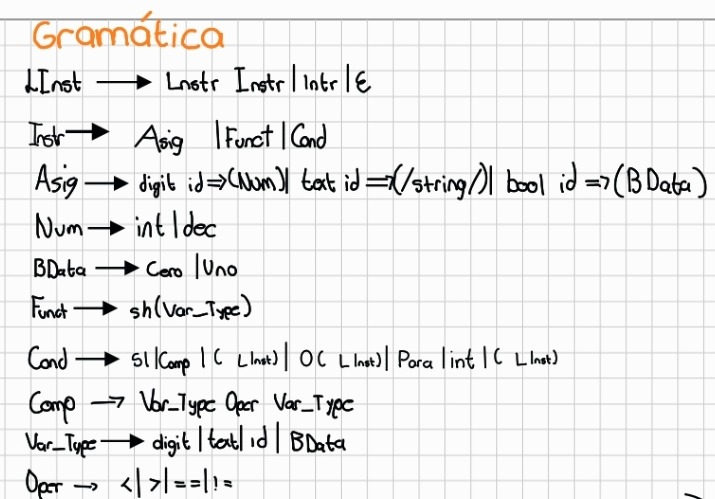 Gramática
LInst → Lnstr Instr | Intr | ε
Instr → Asig | Funct | Cond
Asig → digit id => (Num) | text id => (/string/) | bool id => (BData)
Num → int | dec
BData → Cero | Uno
Funct → sh(Var_Type)
Cond → SI |Comp | ( LInst) | O( LInst) | Para |int | ( LInst)
Comp → Var_Type Oper Var_Type
Var_Type → digit | text | id | BData
Oper → < | > | == | !=